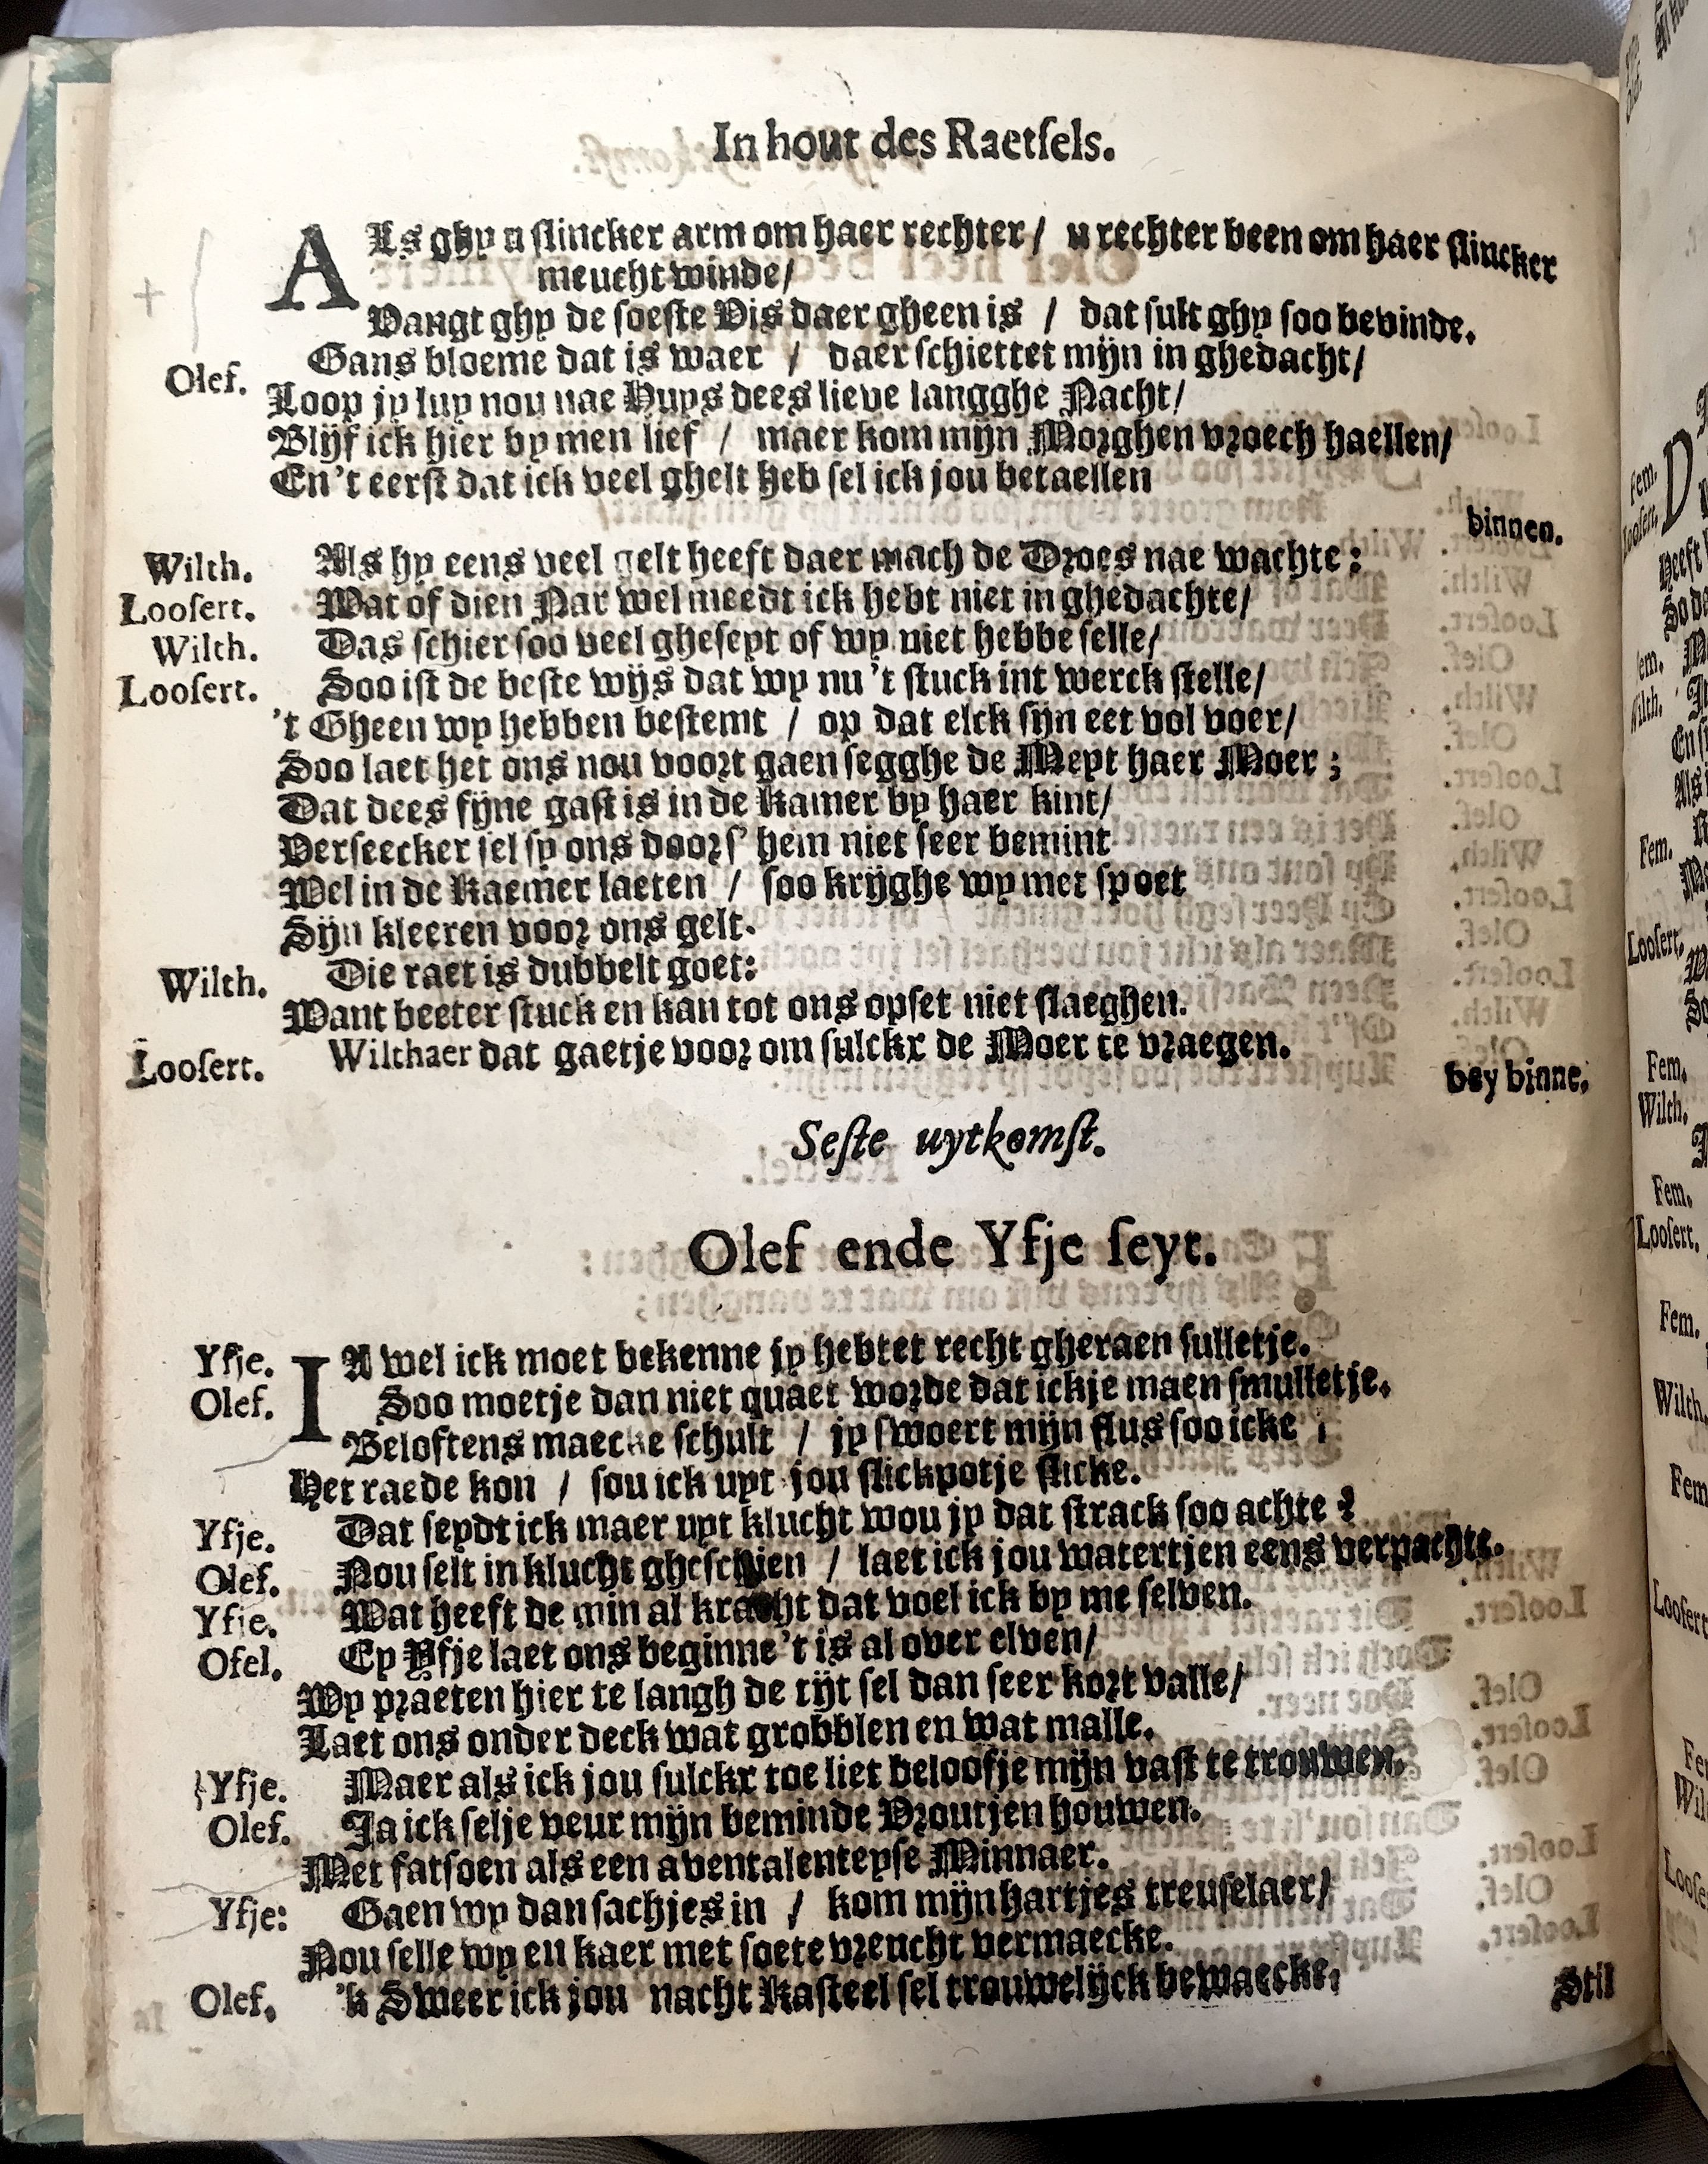 In hout des Raetsels.
ALs ghy u slincker arm om haer rechter / u rechter been om haer slincker
meucht winde/
Vangt ghy de soeste Vis daer gheen is / dat sult ghy soo bevinde.
Olef. Gans bloeme dat is waer / daer schiettet mijn in ghedacht/
Loop jy luy nou nae Huys dees lieve langghe Nacht/
Blijf ick hier by men lief / maer kom mijn Morghen vroech haellen/
En 't eerst dat ick veel ghelt heb sel ick jou betaellen
binnen.
Wilth. Als hy eens veel gelt heeft daer mach de Droes nae wachte:
Loosert. Wat of dien Nar wel meedt ick hebt niet in ghedachte/
Wilth. Das schier soo veel gheseyt of wy niet hebbe selle/
Loosert. Soo ist de beste wijs dat wy nu 't stuck int werck stelle/
't Gheen wy hebben bestemt / op dat elck sijn eet vol voer/
Soo laet het ons nou voort gaen segghe de Meyt haer Moer;
Dat dees fijne gast is in de Kamer by haer kint/
Verseecker sel sy ons doors' hem niet seer bemint
Wel in de Kaemer laeten / soo krijghe wy met spoet
Sijn kleeren voor ons gelt.
Wilth. Die raet is dubbelt goet:
Want beeter stuck en kan tot ons opset niet slaeghen.
Loosert. Wilthaer dat gaetje voor om sulckx de Moer te vraegen.
bey binne.
Seste uytkomst.
Olef ende Yfje seyt.
Yfje. IA wel ick moet bekenne jy hebtet recht gheraen sulletje.
Olef. Soo moetje dan niet quaet worde dat ickje maen smulletje.
Beloftens maecke schult / jy swoert mijn flus soo icke
Het raede kon / sou ick uyt jou slickpotje slicke.
Yfje. Dat seydt ick maer uyt klucht wou jy dat strack soo achte?
Olef. Nou selt in klucht gheschien / laet ick jou watertjen eens verpachte.
Yfje. Wat heeft de min al kracht dat voel ick by me selven.
Ofel. Ey Yfje laet ons beginne 't is al over elven/
Wy praeten hier te langh de tijt sel dan seer kort valle/
Laet ons onder deck wat grobblen en wat malle.
Yfje. Maer als ick jou sulckx toe liet beloofje mijn vast te trouwen.
Olef. Ja ick selje veur mijn beminde Vroutjen houwen.
Met fatsoen als een aventalenteyse Minnaer.
Yfje: Gaen wy dan sachjes in / kom mijn hartjes treuselaer/
Nou selle wy ell kaer met soete vreucht vermaecke.
Olef. 'k Sweer ick jou nacht Kasteel sel trouwelijck bewaecke,
Stil